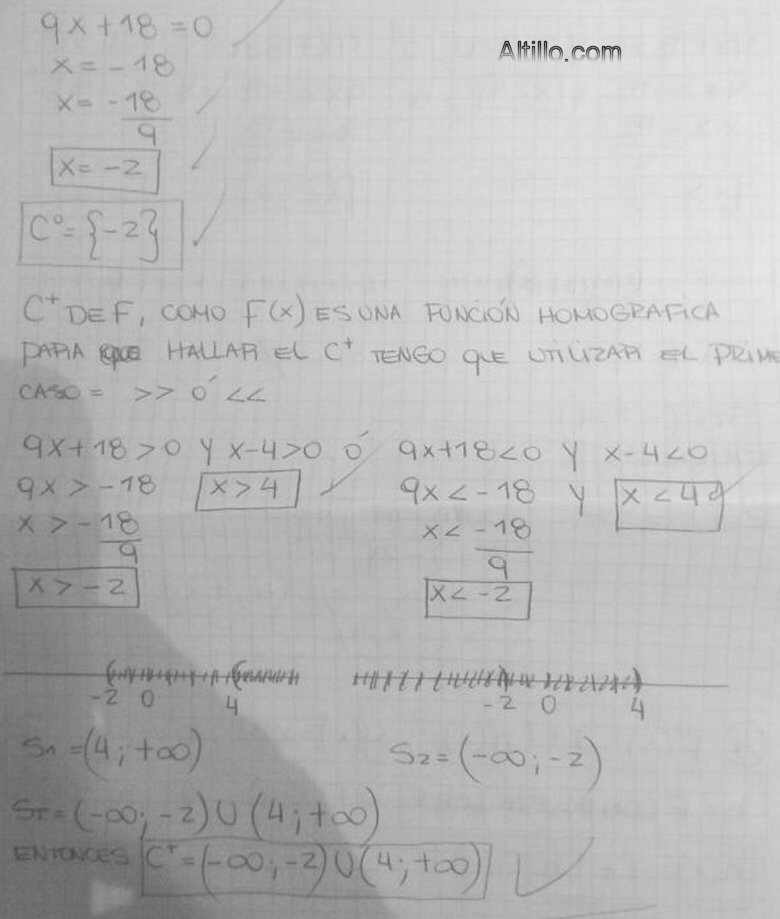 9x+18=0
Altillo.com
x=-18
x=-18
9
x=-2
C°={-2}
C⁺ DE F, COMO F(x) ES UNA FUNCIÓN HOMOGRAFICA
PARA QUE HALLAR EL C⁺ TENGO QUE UTILIZAR EL PRIME
CASO = >> Ó <<
9x+18>0 Y x-4>0 Ó 9x+18<0 Y x-4<0
9x>-18 x>4 9x<-18 Y x<4
x>-18 x<-18
9 9
x>-2 x<-2
-2 0 4 -2 0 4
S1=(4;+∞) S2=(-∞;-2)
ST=(-∞;-2)U(4;+∞)
ENTONCES C⁺=(-∞;-2)U(4;+∞)